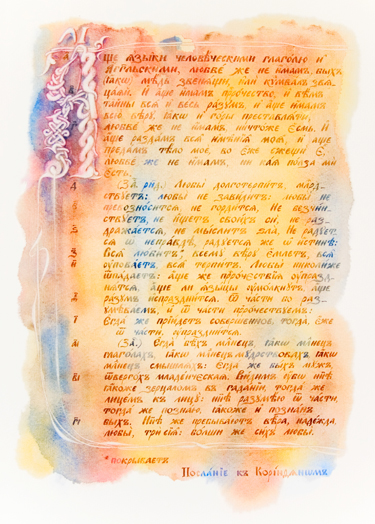 Аще ѧзы́ки человѣческими глаголю и
а҆́гг҃льскими, любве́ же не и҆́мамъ, быхъ
(ꙗ҆́кѡ) мѣдь звенѧщи, или кѷмвалъ звѧ-
цаѧй. И҆ а҆́ще и҆́мамъ прⷪ҇рочество, и҆ вѣмъ
та̑йны всѧ̑ и҆ весь разумъ, и҆ а҆́ще и҆́мамъ
всю вѣру, ꙗ҆́кѡ и҆ горы преставлѧти,
любве́ же не и҆́мамъ, ничтоже є҆́смь. И҆
а҆́ще раздамъ всѧ̑ и҆мѣ̑нїѧ моѧ̑, и҆ а҆́ще
предамъ тѣло моє, во є҆́же сжещи є҆̀,
любве́ же не и҆́мамъ, ни каѧ польза ми
є҆́сть.
д (За҄. рн҃д.) Любы̀ долготерпитъ, млⷭ҇рд-
ствуетъ: любы̀ не завидитъ: любы̀ не
превозноситсѧ, не гордитсѧ. Не безчин-
ствуетъ, не и҆щетъ своихъ си, не раз-
дражаетсѧ, не мыслитъ ѕла̀. Не радует-
сѧ ѡ҆ неправдѣ, радуетсѧ же ѡ҆ истинѣ:
Всѧ̑ любитъ*, всемꙋ вѣрꙋ є҆́млетъ, всѧ̑
ᲂу҆поваетъ, всѧ̑ терпитъ. Любы̀ николиже
ѿпадаетъ: а҆́ще же прⷪ҇рочествїѧ ᲂу҆праздн-
ѧтсѧ, а҆́ще ли ѧзы́цы ᲂу҆молкнутъ, а҆́ще
разумъ и҆спразднитсѧ. Ѿ части бо раз-
умѣваемъ, и҆ ѿ части прⷪ҇рочествꙋемъ:
є҆гда̀ же прїидетъ совершенное, тогда̀, є҆́же
ѿ части, ᲂу҆празднитсѧ.
аі (За҄.) Є҆гда̀ бѣхъ младенецъ, ꙗ҆́кѡ младенецъ
глаголахъ, ꙗ҆́кѡ младенецъ мудрствовахъ, ꙗ҆́кѡ
младенецъ смышлѧхъ: є҆гда̀ же быхъ мужъ,
ві ѿвергохъ младенческаѧ. Видимъ ᲂу҆́бѡ нн҃ѣ
ꙗ҆́коже зерцаломъ въ гаданїи, тогда̀ же
лицемъ къ лицꙋ: нн҃ѣ разумѣю ѿ части,
тогда̀ же познаю, ꙗ҆́коже и҆ познанъ
гі быхъ. Нн҃ѣ же пребываютъ вѣра, надежда,
любы̀, три сїѧ̑: больши же сихъ любы̀.
* покрываетъ
Посланїе къ Корінѳѧнѡмъ